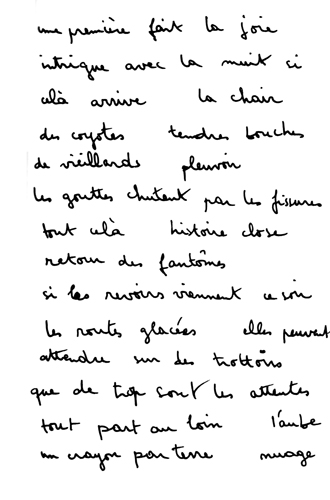 une première fait la joie
intrigue avec la nuit si
cela arrive la chair
des coyotes tendres bouches
de vieillards pleuvoir
les gouttes chutent par les fissures
tout cela histoire close
retour des fantômes
si les revoirs viennent ce soir
les routes glacées elles peuvent
attendre sur des trottoirs
que de trop sont les attentes
tout part au loin l'aube
un crayon par terre nuage